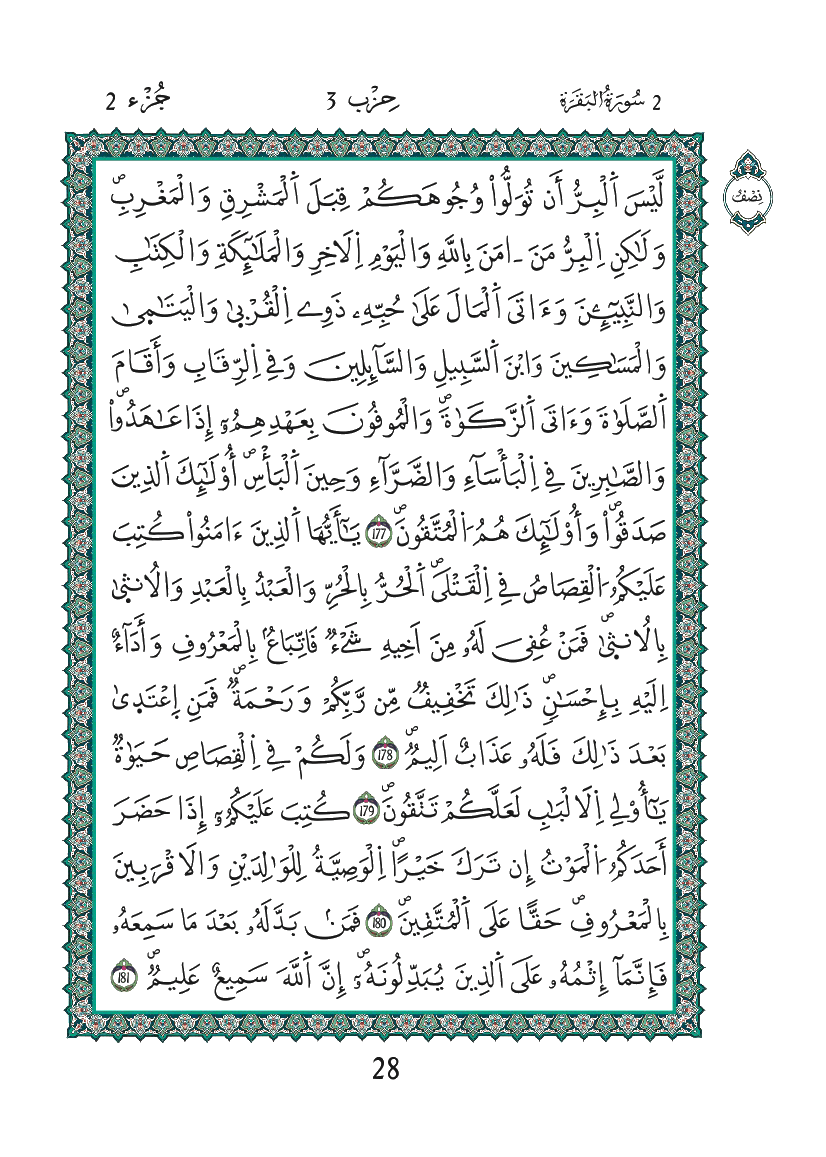 2 سُورَةُ البَقَرَة حِزْب 3 جُزْء 2
نِصْفُ
لَّيْسَ اَ۬لْبِرُّ أَن تُوَلُّواْ وُجُوهَكُمْ قِبَلَ اَ۬لْمَشْرِقِ وَالْمَغْرِبِۖ
وَلَٰكِنِ اِ۬لْبِرُّ مَنَ ـ امَنَ بِاللَّهِ وَالْيَوْمِ اِ۬لَاخِرِ وَالْمَلَٰٓئِكَةِ وَالْكِتَٰبِ
وَالنَّبِيٓـِٕنَ وَءَاتَى اَ۬لْمَالَ عَلَىٰ حُبِّهِۦ ذَوِے اِ۬لْقُرْبىٰ وَالْيَتَٰمىٰ
وَالْمَسَٰكِينَ وَابْنَ اَ۬لسَّبِيلِ وَالسَّآئِلِينَ وَفِے اِ۬لرِّقَابِ وَأَقَامَ
اَ۬لصَّلَوٰةَ وَءَاتَى اَ۬لزَّكَوٰةَۖ وَالْمُوفُونَ بِعَهْدِهِمُۥٓ إِذَا عَٰهَدُواْۖ
وَالصَّٰبِرِينَ فِے اِ۬لْبَأْسَآءِ وَالضَّرَّآءِ وَحِينَ اَ۬لْبَأْسِۖ أُوْلَٰٓئِكَ اَ۬لذِينَ
صَدَقُواْۖ وَأُوْلَٰٓئِكَ هُمُ اُ۬لْمُتَّقُونَۖ 177 يَٰٓأَيُّهَا اَ۬لذِينَ ءَامَنُواْ كُتِبَ
عَلَيْكُمُ اُ۬لْقِصَاصُ فِے اِ۬لْقَتْلَىۖ اَ۬لْحُرُّ بِالْحُرِّ وَالْعَبْدُ بِالْعَبْدِ وَالُانثىٰ
بِالُانثىٰۖ فَمَنْ عُفِيَ لَهُۥ مِنَ اَخِيهِ شَےْءٞ فَاتِّبَاعُۢ بِالْمَعْرُوفِ وَأَدَآءٌ
اِلَيْهِ بِإِحْسَٰنٖۖ ذَٰلِكَ تَخْفِيفٞ مِّن رَّبِّكُمْ وَرَحْمَةٞۖ فَمَنِ اِ۪عْتَدىٰ
بَعْدَ ذَٰلِكَ فَلَهُۥ عَذَابٌ اَلِيمٞۖ 178 وَلَكُمْ فِے اِ۬لْقِصَاصِ حَيَوٰةٞ
يَٰٓأُوْلِے اِ۬لَالْبَٰبِ لَعَلَّكُمْ تَتَّقُونَۖ 179 كُتِبَ عَلَيْكُمُۥٓ إِذَا حَضَرَ
أَحَدَكُمُ اُ۬لْمَوْتُ إِن تَرَكَ خَيْراًۖ اِ۬لْوَصِيَّةُ لِلْوَٰلِدَيْنِ وَالَاقْرَبِينَ
بِالْمَعْرُوفِۖ حَقّاً عَلَى اَ۬لْمُتَّقِينَۖ 180 فَمَنۢ بَدَّلَهُۥ بَعْدَ مَا سَمِعَهُۥ
فَإِنَّمَآ إِثْمُهُۥ عَلَى اَ۬لذِينَ يُبَدِّلُونَهُۥٓۖ إِنَّ اَ۬للَّهَ سَمِيعٌ عَلِيمٞۖ 181
28